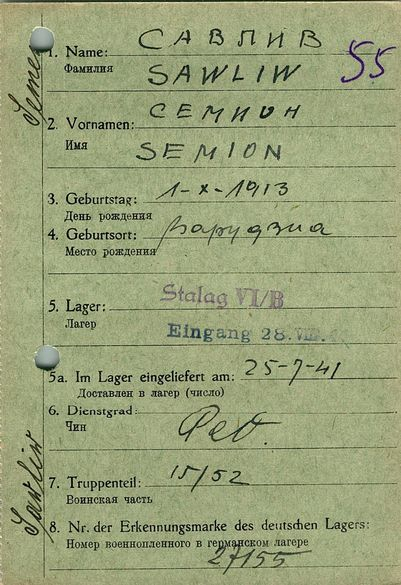 САВЛИВ
1. Name:
Фамилия
SAWLIW
55
СЕМИОН
2. Vornamen:
Имя
SEMION
3. Geburtstag: 1-X-1913
День рождения
4. Geburtsort:
Место рождения
5. Lager: Stalag VI/B
Лагер
Eingang 28. VIII.
5a. Im Lager eingeliefert am: 25-7-41
Доставлен в лагер (число)
6. Dienstgrad:
Чин
7. Truppenteil: 15/52
Воинская часть
8. Nr. der Erkennungsmarke des deutschen Lagers:
Номер военнопленного в германском лагере
27155
Sawliw